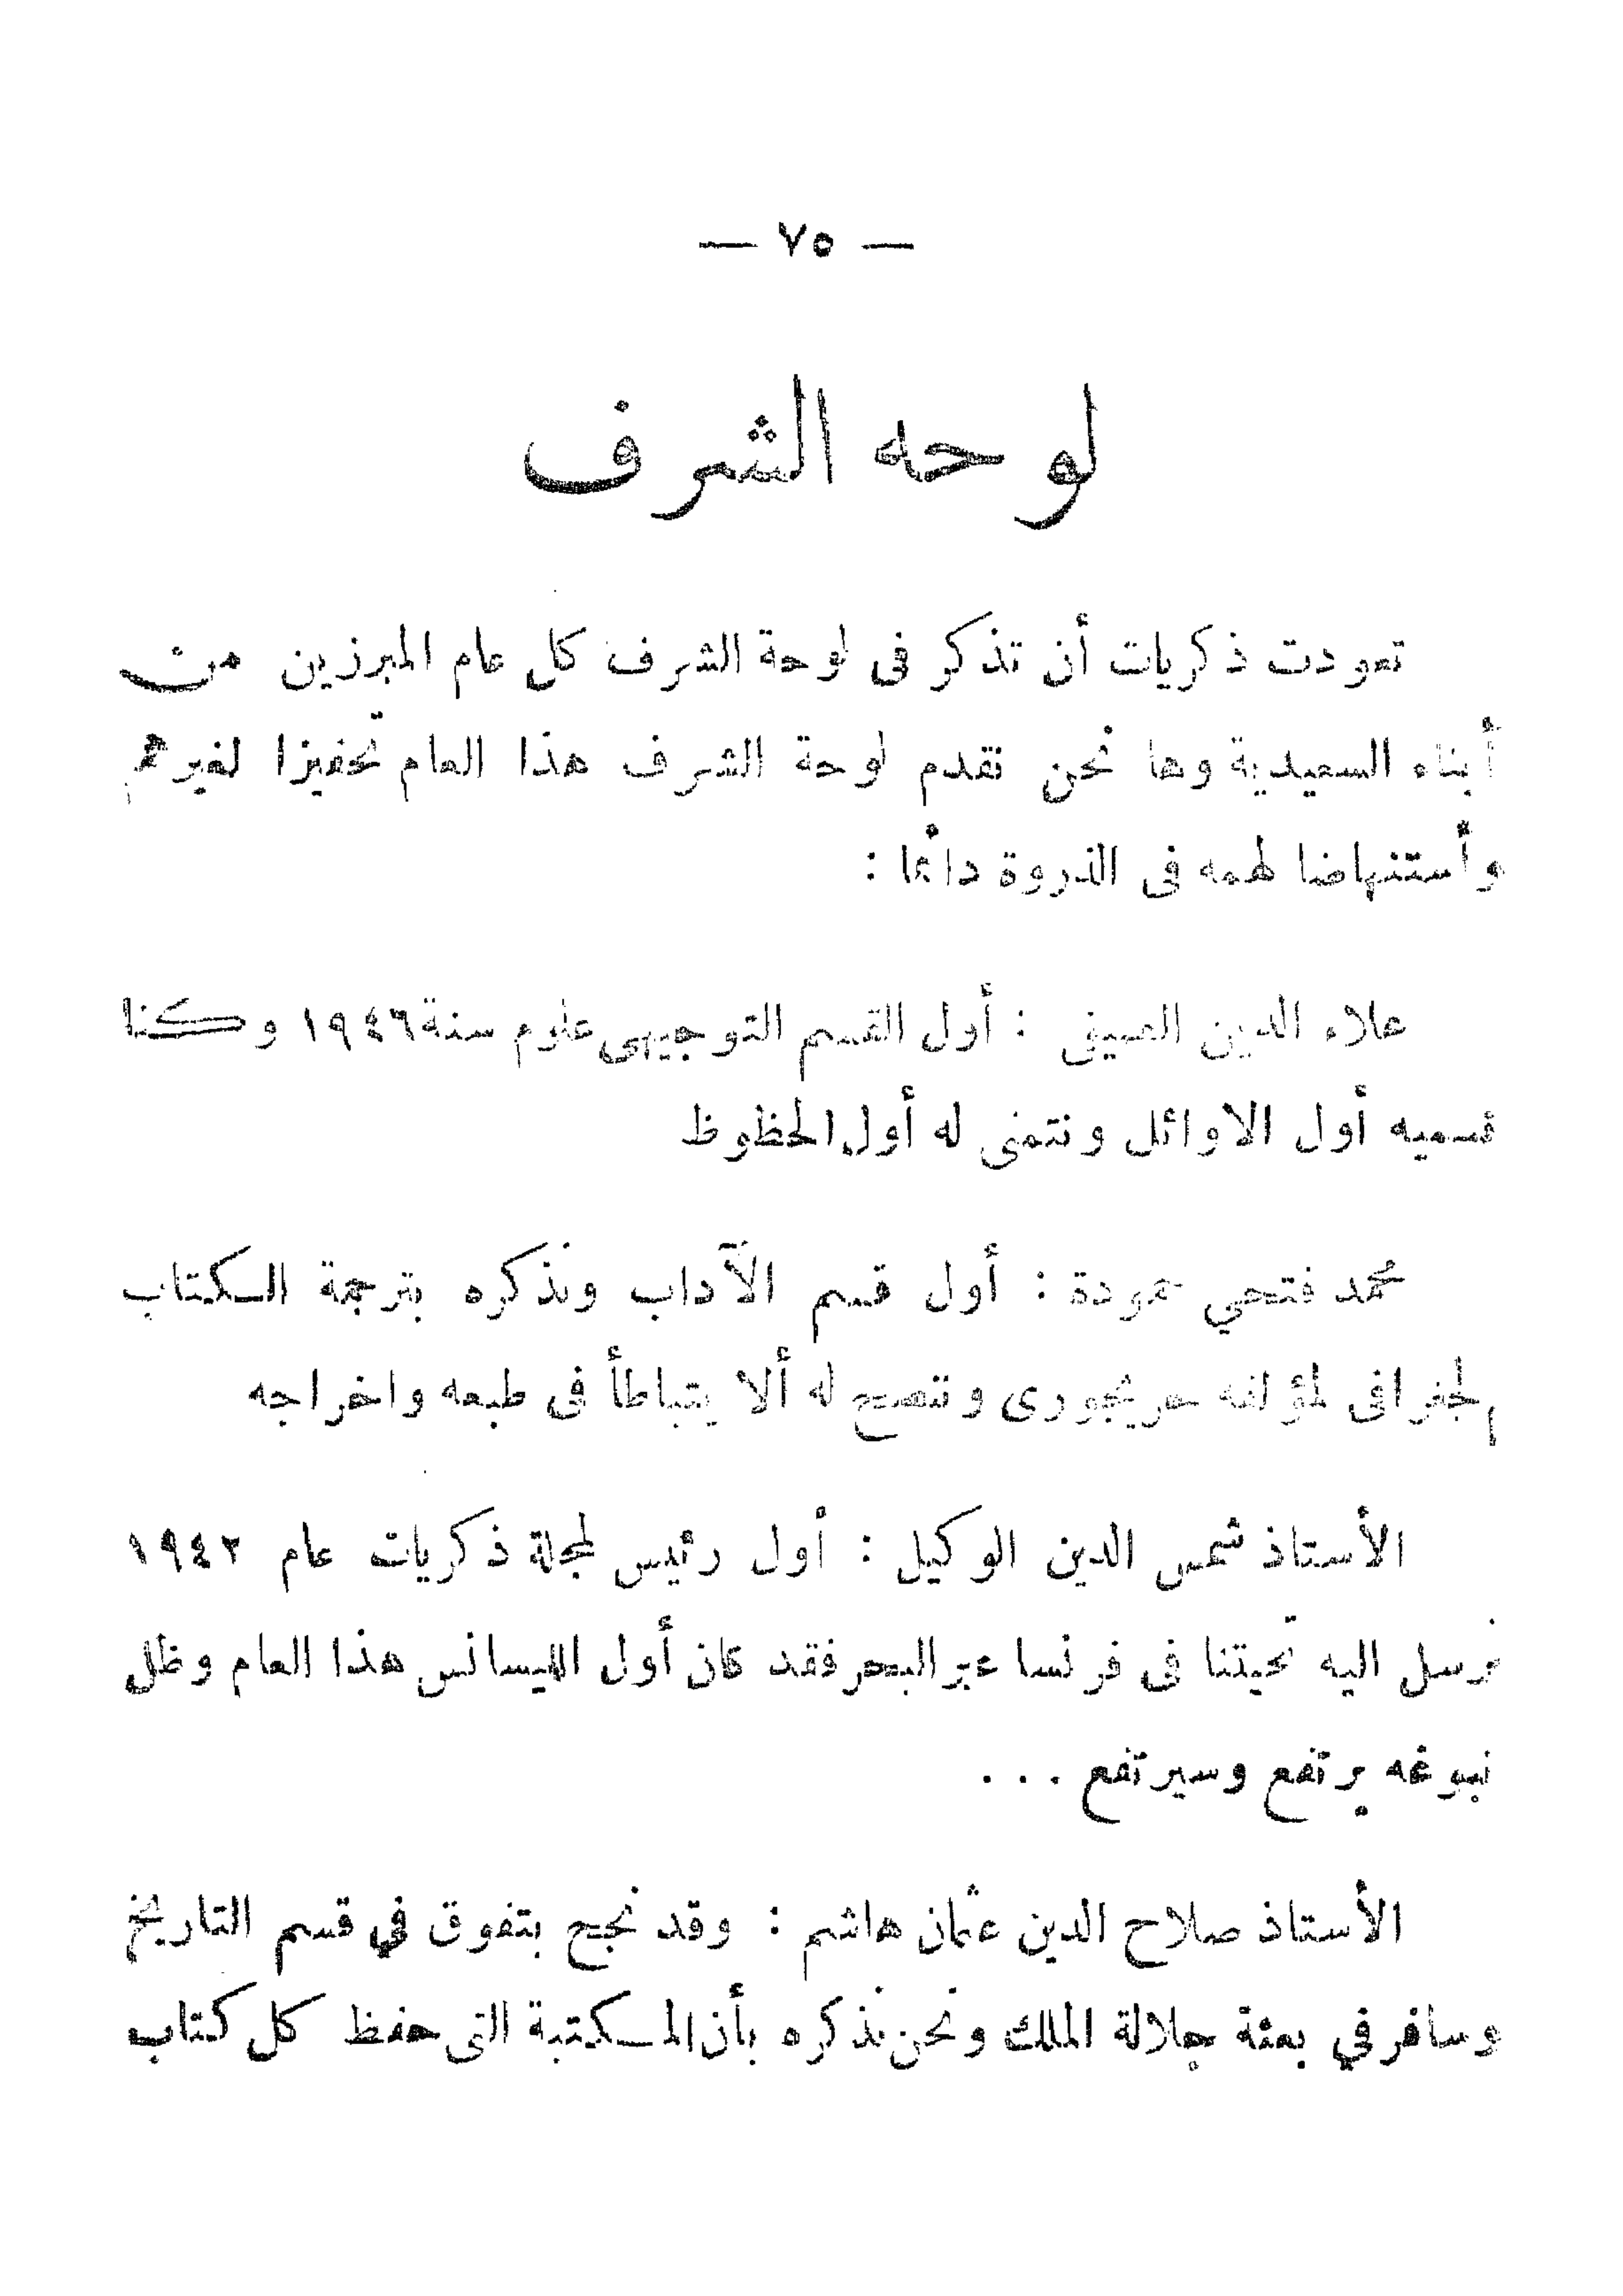 — ٧٥ —
لوحه الشرف
تعودت ذكريات أن تذكر فى لوحة الشرف كل عام المبرزين من
أبناء السعيدية وها نحن نقدم لوحة الشرف هذا العام تحفيزا لغيرهم
وأستنهاضا لهمه فى الذروة دائما :
علاء الدين الصيفى : أول القسم التوجيهى علوم سنة ١٩٤٦ وكنا
نسميه أول الاوائل ونتمنى له أول الحظوظ
محمد فتحي حمودة : أول قسم الآداب ونذكره بترجمة الكتاب
الجغرافى لمؤلفه جريجورى وننصح له ألا يتباطأ فى طبعه واخراجه
الأستاذ شمس الدين الوكيل : أول رئيس لمجلة ذكريات عام ١٩٤٢
نرسل اليه تحيتنا فى فرنسا عبر البحر فقد كان أول الليسانس هذا العام وظل
نبوغه يرتفع وسيرتفع . . .
الأستاذ صلاح الدين عثمان هاشم : وقد نجح بتفوق في قسم التاريخ
وسافر في بعثة جلالة الملك ونحن نذكره بأن المكتبة التى حفظ كل كتاب